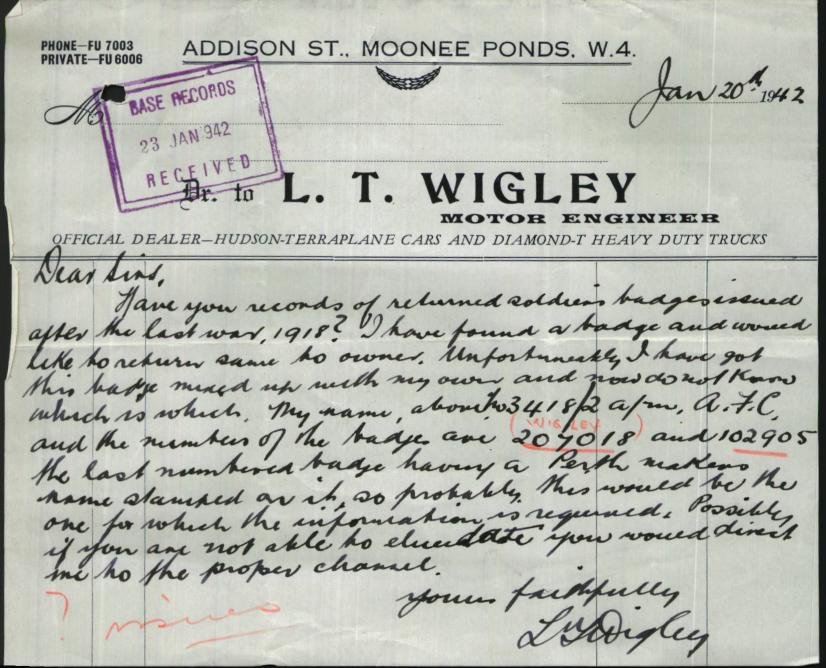 PHONE—FU 7003
PRIVATE—FU 6006
ADDISON ST., MOONEE PONDS, W.4.
Jan 20th 1942
M
BASE RECORDS
23 JAN 942
RECEIVED
Dr. to L. T. WIGLEY
MOTOR ENGINEER
OFFICIAL DEALER—HUDSON-TERRAPLANE CARS AND DIAMOND-T HEAVY DUTY TRUCKS
Dear Sirs,
Have you records of returned soldiers badges issued
after the last war, 1918? I have found a badge and would
like to return same to owner. Unfortunately I have got
this badge mixed up with my own and now do not know
which is which. My name, above No 3418 1/2 a/m, A.F.C,
(WIGLEY)
and the numbers of the badges are 207018 and 102905
the last numbered badge having a Perth makers
name stamped on it, so probably this would be the
one for which the information is required. Possibly
if you are not able to elucidate you would direct
me to the proper channel.
Yours faithfully
L T Wigley
?